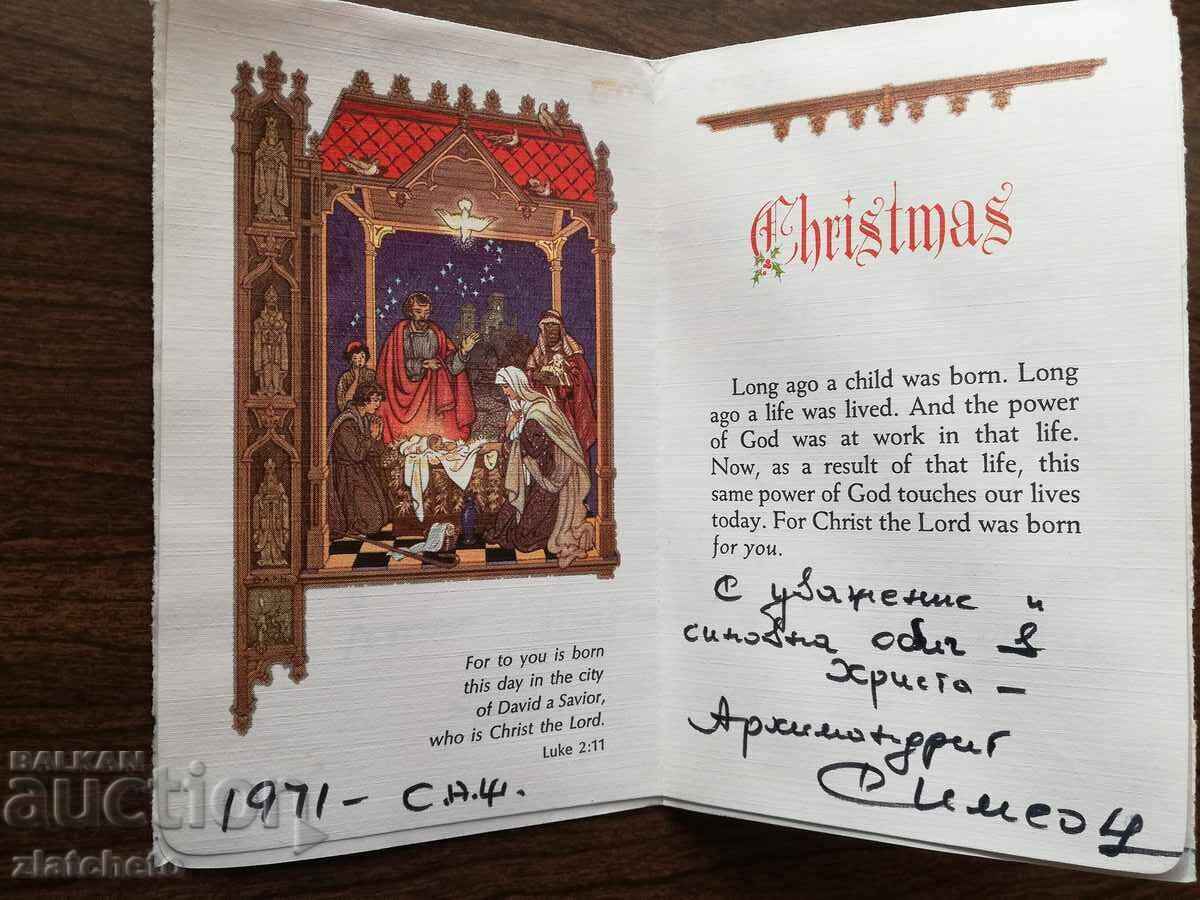 For to you is born
this day in the city
of David a Savior,
who is Christ the Lord.
Luke 2:11
1971 – С.А.Щ.
Christmas
Long ago a child was born. Long
ago a life was lived. And the power
of God was at work in that life.
Now, as a result of that life, this
same power of God touches our lives
today. For Christ the Lord was born
for you.
С уважение и
синовна обич в
Христа –
Архимандрит
Симеон
BALKAN
auction
zlatcheto